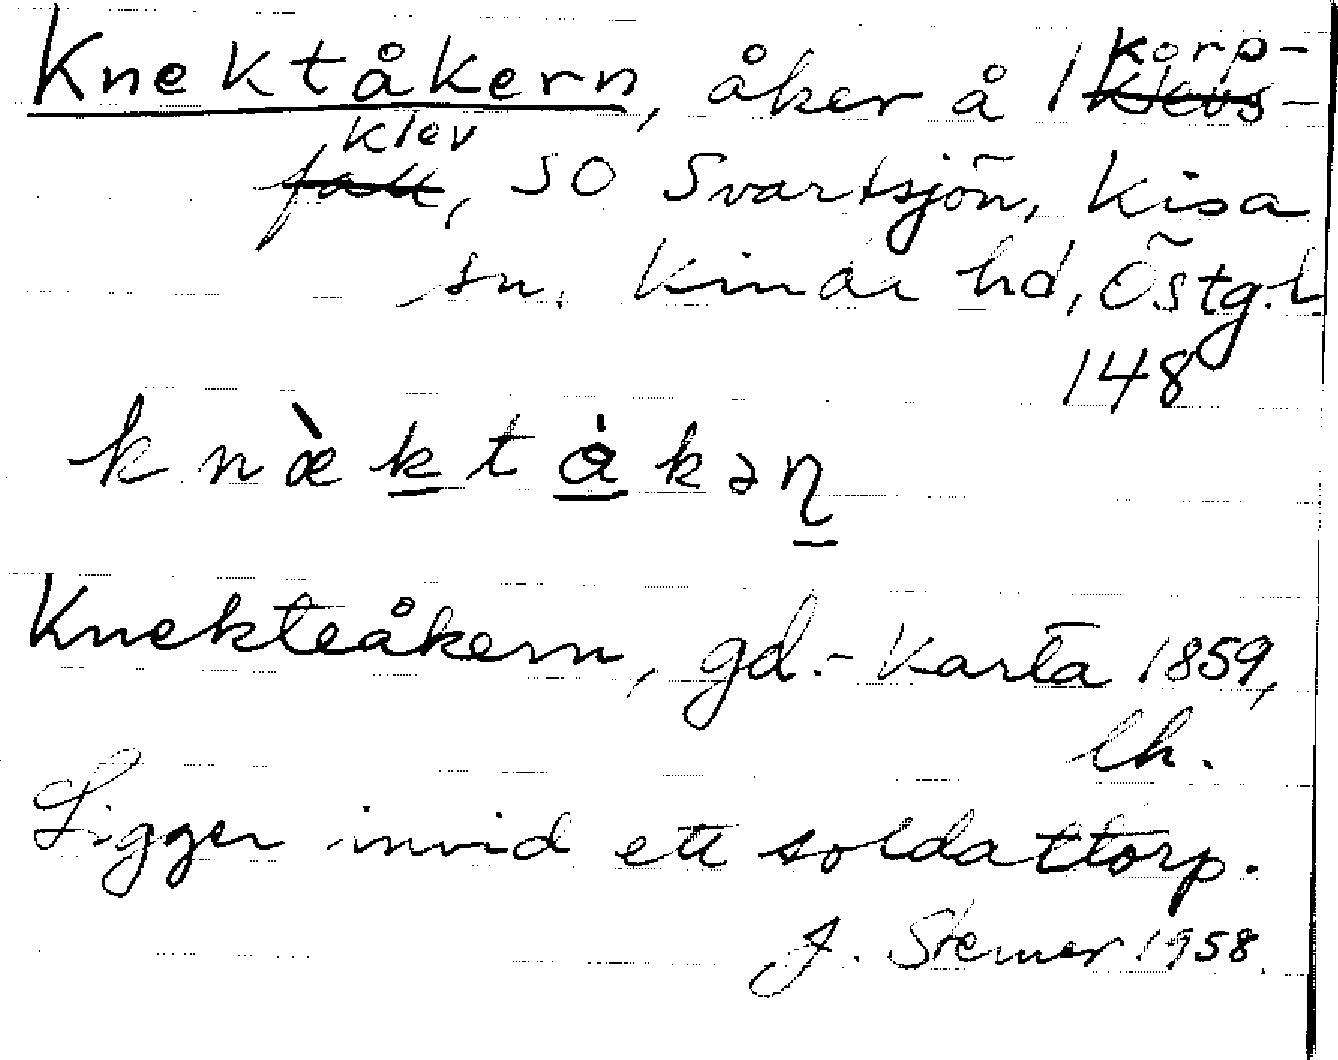 Knektåkern, åker å 1 Korp-
klev, SO Svartsjön, Kisa
sn. Kinda hd, Östg.l
148
knæ̀ktåkən
Knekteåkern, gd.-karta 1859,
lh.
Ligger invid ett soldattorp.
J. Sterner 1958.